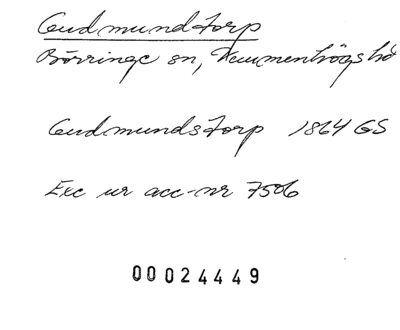 Gudmundstorp
Börringe sn, Vemmenhögs hd
Gudmundstorp 1864 GS
Exc ur acc-nr 7506
00024449